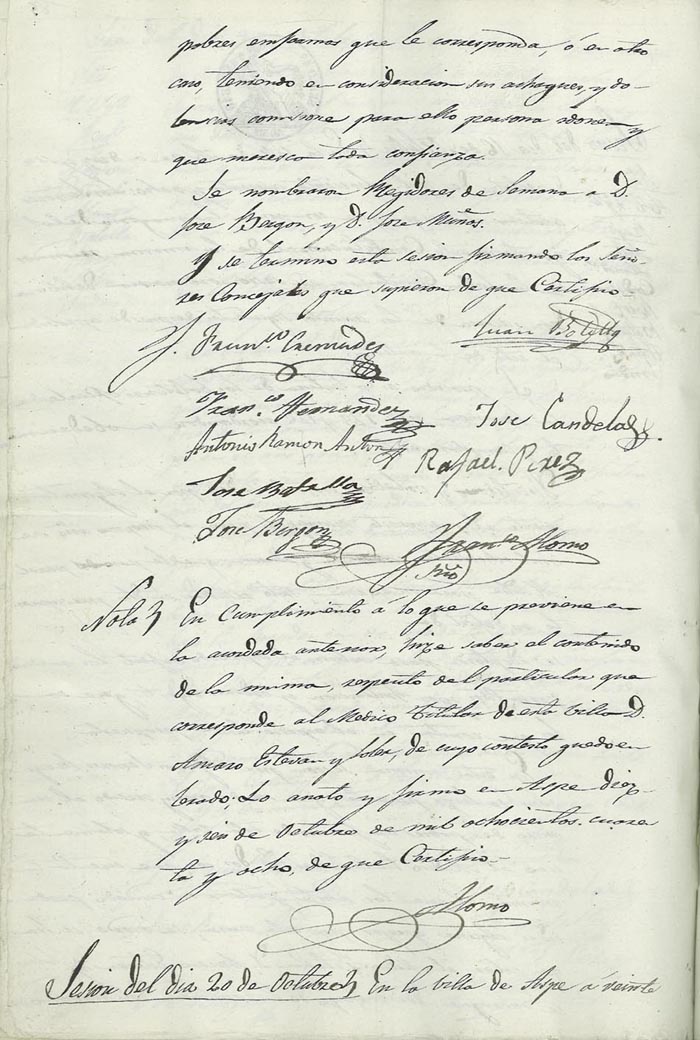 pobres enfermos que le corresponda, ó en otro
caso, teniendo en consideracion sus achaques, y do-
lencias comisione para ello persona idonea y
que meresca toda confianza.
Se nombraron Regidores de Semana a D.
Jose Bergon, y D. Jose Muños.
Y se termino esta sesion firmando los Seño-
res Concejales que supieron de que Certifico-
F. Franco. Cremades
Juan Botella
Franco. Hernandez
Jose Candela
Antonio Ramon Anton
Rafael. Perez
Jose Botella
Jose Bergon
Franco. Alonso
Srio
Nota
En Cumplimiento á lo que se previene en
la acordada anterior, hize saber el contenido
de la misma, respecto del particular que
corresponde al Medico Titular de esta Villa D.
Amaro Estevan y Soler, de cuyo contesto quedo en-
terado; Lo anoto y firmo en Aspe diez
y seis de Octubre de mil ochocientos cuaren-
ta y ocho, de que Certifico-
Alonso
Sesion del dia 20 de Octubre En la villa de Aspe á veinte